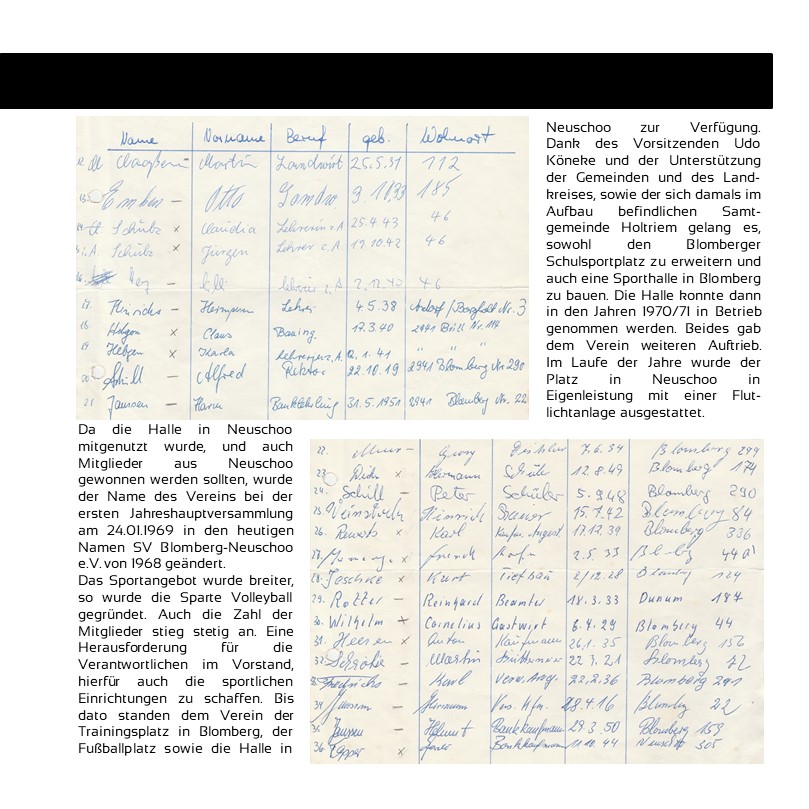 Name Vorname Beruf geb. Wohnort
Martin Landwirt 25.5.31 112
Otto 185
Schütz × Claudia Lehrerin z.A 25.4.43 46
Schütz × Jürgen Lehrer z.A 17.10.42 46
46
17. Hinrichs — Hermann Lehrer 4.5.38 Nr. 3
18 × Claus Bauing. 17.3.40 2941 Nr. 114
19 × Karla Lehrerin z.A. 2.1.41 " " "
20 Schill — Alfred Rektor 22.10.19 2941 Blomberg Nr 290
21 Janssen — Harm Banklehrling 31.5.1951 2941 Blomberg Nr. 22
Neuschoo zur Verfügung.
Dank des Vorsitzenden Udo
Köneke und der Unterstützung
der Gemeinden und des Land-
kreises, sowie der sich damals im
Aufbau befindlichen Samt-
gemeinde Holtriem gelang es,
sowohl den Blomberger
Schulsportplatz zu erweitern und
auch eine Sporthalle in Blomberg
zu bauen. Die Halle konnte dann
in den Jahren 1970/71 in Betrieb
genommen werden. Beides gab
dem Verein weiteren Auftrieb.
Im Laufe der Jahre wurde der
Platz in Neuschoo in
Eigenleistung mit einer Flut-
lichtanlage ausgestattet.
Da die Halle in Neuschoo
mitgenutzt wurde, und auch
Mitglieder aus Neuschoo
gewonnen werden sollten, wurde
der Name des Vereins bei der
ersten Jahreshauptversammlung
am 24.01.1969 in den heutigen
Namen SV Blomberg-Neuschoo
e.V. von 1968 geändert.
Das Sportangebot wurde breiter,
so wurde die Sparte Volleyball
gegründet. Auch die Zahl der
Mitglieder stieg stetig an. Eine
Herausforderung für die
Verantwortlichen im Vorstand,
hierfür auch die sportlichen
Einrichtungen zu schaffen. Bis
dato standen dem Verein der
Trainingsplatz in Blomberg, der
Fußballplatz sowie die Halle in
22. Georg 7.6.34 Blomberg 299
23 × Hermann Schüler 12.8.49 Blomberg 174
24. Schill — Peter Schüler 5.9.48 Blomberg 290
25. Heinrich 15.7.42 Blomberg 84
26. × Karl Kaufm. Angest 17.12.39 Blomberg 336
27. × 2.5.33
28. Jaschke × Kurt Tiefbau Blomberg 124
29. Rotter — Reinhard Beamter 18.3.33 Dunum 187
30. Wilhelm × Cornelius Gastwirt 6.4.29 Blomberg 44
31. Heeren × Anton Kaufmann 26.1.35 Blomberg 156
32 — Martin 22.3.21 Blomberg
Friedrichs — Karl Verw. Ang. 22.2.36 Blomberg 291
34 Janssen — Hermann 28.4.16 Blomberg 22
35 Janssen — Helmut Bankkaufmann 29.3.50 Blomberg 159
36 × Bankkaufmann 11.10.44 Neuschoo 305